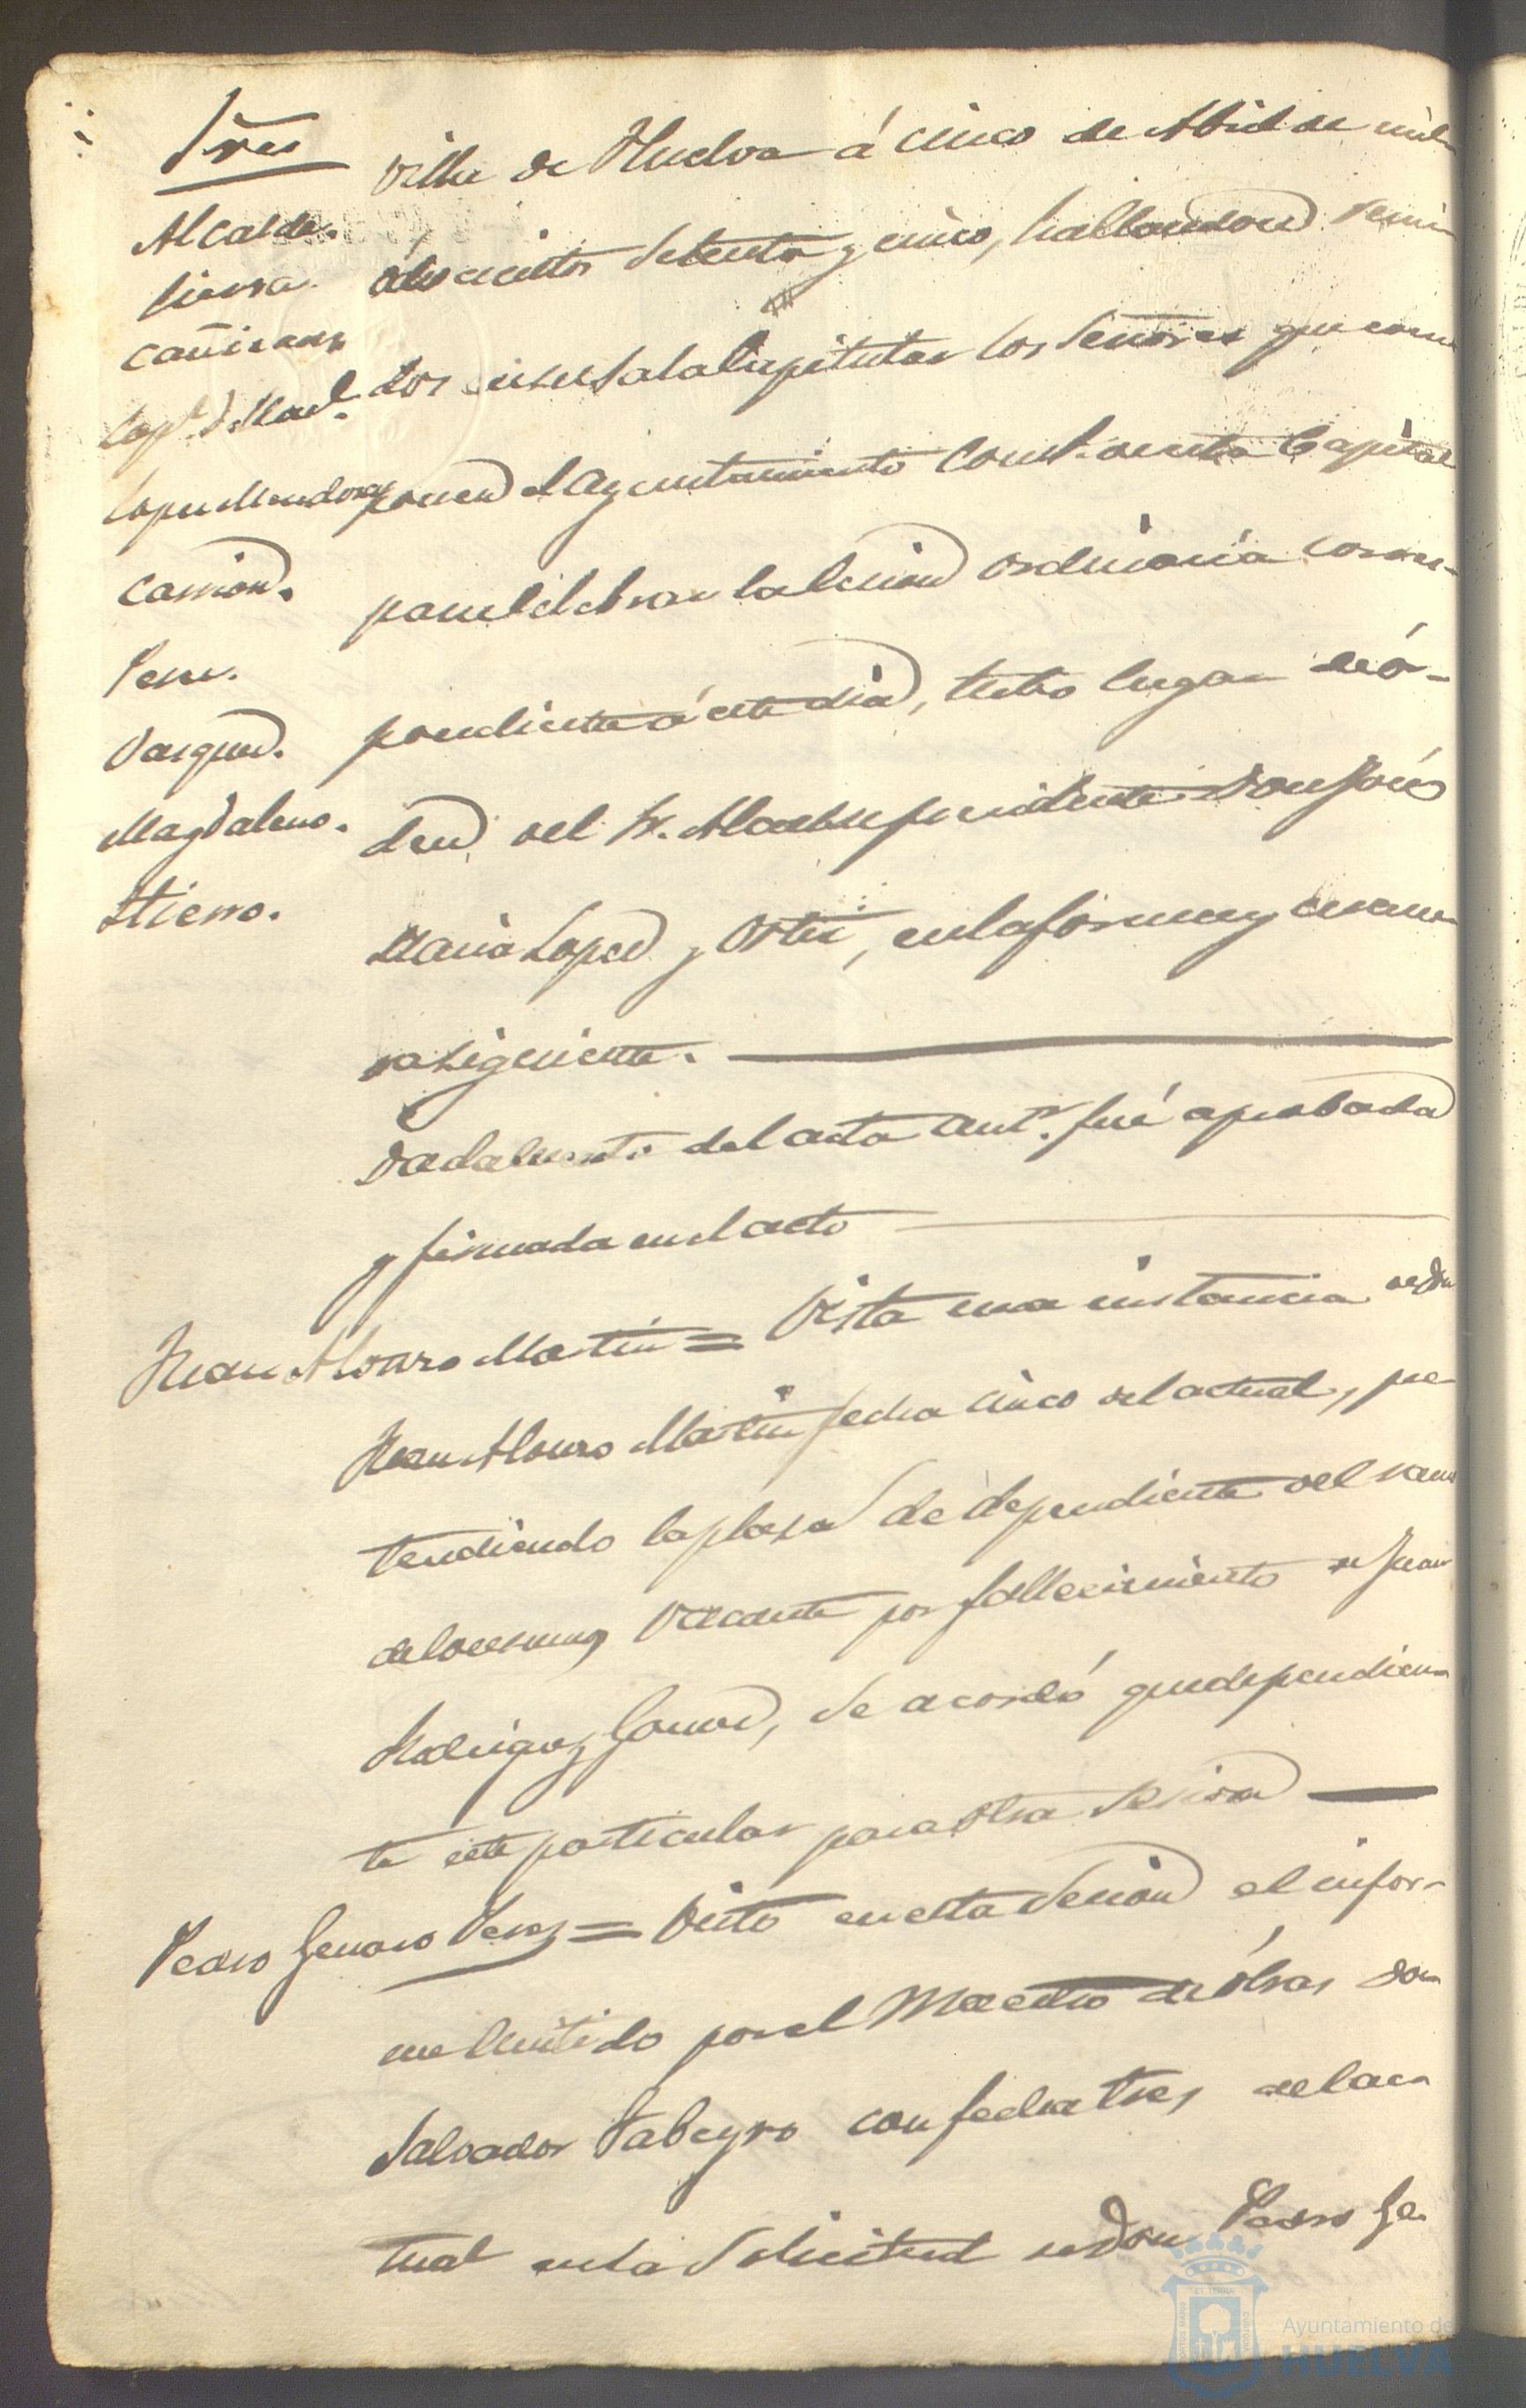 Sres
Alcalde.
Sierra.
Cañizares
Lopez Mendoza
Carrion.
Perez.
Vazquez.
Magdaleno.
Hierro.
villa de Huelva á cinco de Abril de mil
ochocientos setenta y cinco, hallandose reuni
dos en su Sala Capitular los Señores que com
ponen el Ayuntamiento Const. de esta Capital
para celebrar la Sesion ordinaria corres-
pondiente á este dia, tubo lugar de ór-
den del Sr. Alcalde presidente Don José
Maria Lopez y Ortiz, en la forma y mane
ra siguiente.
Dada lectura del acta antr. fué aprobada
y firmada en el acto
Juan Alonso Martin = Vista una instancia de Dn
Juan Alonso Martin fecha cinco del actual, pre
tendiendo la plaza de dependiente del ramo
de consumos vacante por fallecimiento de Juan
Rodriguez Gomez, se acordó quede pendien
te este particular para otra Sesion
Pedro Genaro Perez = Visto en esta Sesion el infor-
me emitido por el Maestro de Obras Don
Salvador Tabeyro con fecha tres del ac-
tual en la Solicitud de Don Pedro Ge
Ayuntamiento de
HUELVA